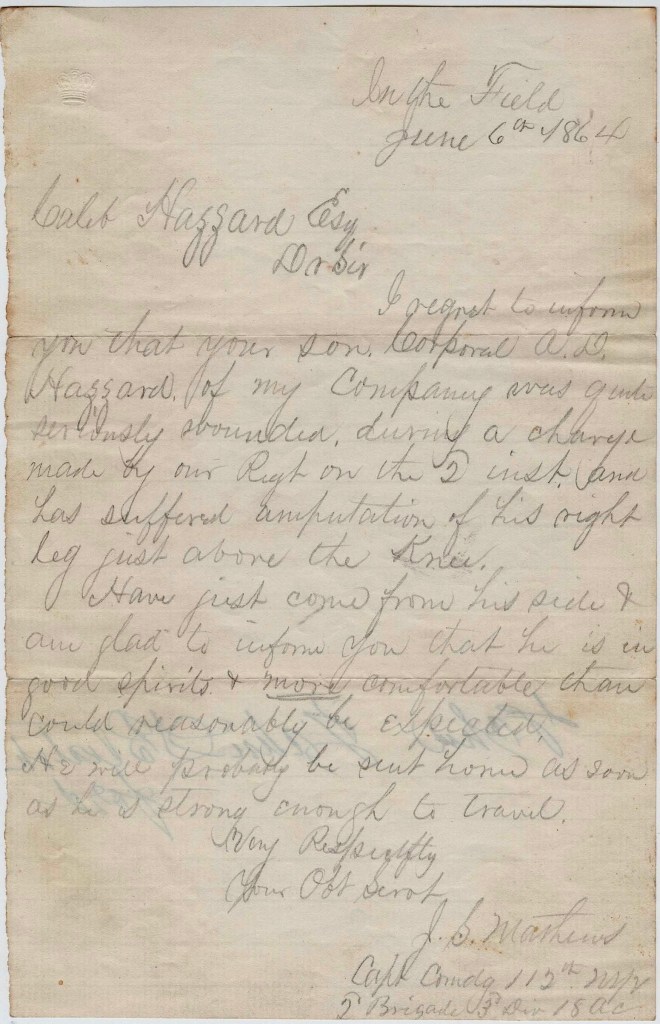 In the Field
June 6th 1864
Caleb Hazzard Esq
Dr Sir
I regret to inform
you that your son, Corporal A. D.
Hazzard, of my Company was quite
seriously wounded, during a charge
made by our Regt on the 2 inst. and
has suffered amputation of his right
leg just above the Knee.
Have just come from his side &
am glad to inform you that he is in
good spirits & more comfortable than
could reasonably be expected.
He will probaly be sent home as soon
as he is strong enough to travel.
Very Respectfly
Your Obt Servt
J. S. Mathews
Capt Comdg 112th NYV
Brigade 3d Div 18 AC